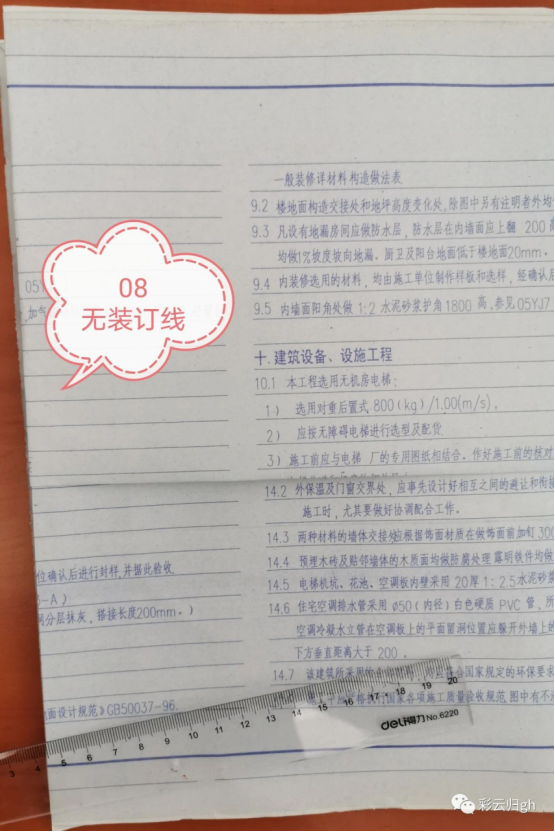 08
无装订线
一般装修详材料构造做法表
9.2 楼地面构造交接处和地坪高度变化处,除图中另有注明者外均
9.3 凡设有地漏房间应做防水层, 防水层在内墙面应上翻 200高
均做1%坡度坡向地漏。厨卫及阳台地面低于楼地面20mm。
05Y
9.4 内装修选用的材料, 均由施工单位制作样板和选样, 经确认后
,加气
9.5 内墙面阳角处做 1:2 水泥砂浆护角1800 高,参见05YJ7
十. 建筑设备、设施工程
10.1 本工程选用无机房电梯:
1) 选用对重后置式 800(kg)/1.00(m/s),
2) 应按无障碍电梯进行选型及配货
3) 施工前应与电梯 厂的专用图纸相结合。作好施工前的核对
14.2 外保温及门窗交界处, 应事先设计好相互之间的避让和衔接
施工时, 尤其要做好协调配合工作。
14.3 两种材料的墙体交接处应根据饰面材质在做饰面前加钉300
位确认后进行封样,并据此验收
14.4 预埋木砖及贴邻墙体的木质面均做防腐处理 露明铁件均做
-A)
14.5 电梯机坑、花池、空调板内壁采用 20厚 1: 2.5水泥砂浆
分层抹灰, 搭接长度200mm。)
14.6 住宅空调排水管采用 Ø50(内径)白色硬质 PVC 管, 所
空调冷凝水立管在空调板上的平面留洞位置应躲开外墙上的
下方垂直距离大于 200。
14.7 该建筑所采用的 符合国家规定的环保要求
面设计规范》GB50037-96.
国家各项施工质量验收规范 图中有不
3 4 5 6 7 8 9 10 11 12 13 14 15 16 17 18 19 20
deli得力 No.6220
彩云归gh